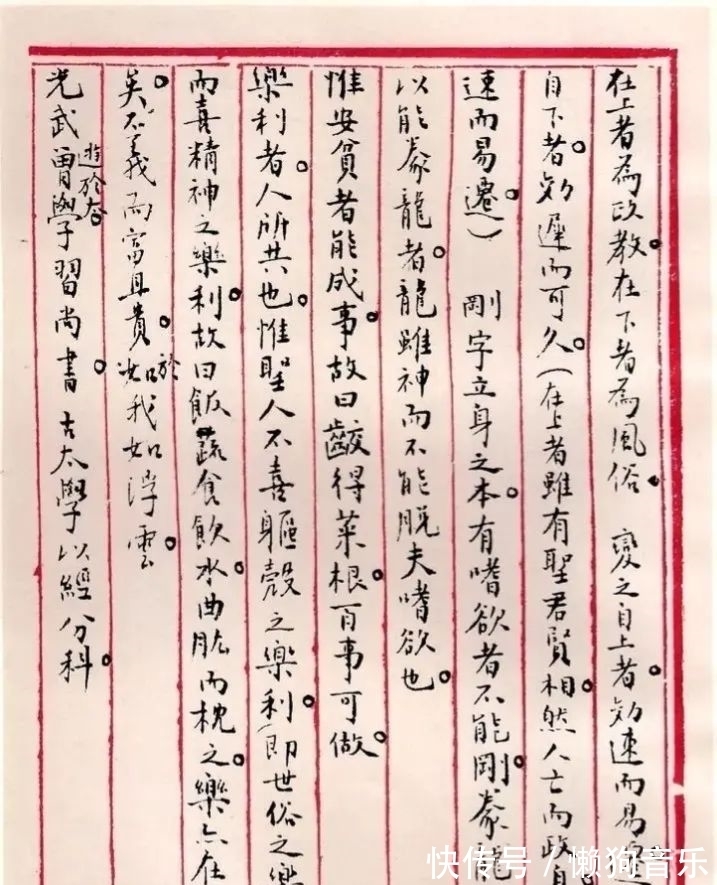 在上者為政教。在下者為風俗。 變之自上者。効速而易
自下者。効遲而可久。(在上者雖有聖君賢相。然人亡而政
速而易遷。) 剛字立身之本。有嗜欲者不能剛。豢龍
以能豢龍者。龍雖神而不能脱夫嗜欲也。
惟安貧者能成事。故曰齩得菜根。百事可做。
樂利者。人所共也。惟聖人不喜軀殼之樂利。(即世俗之樂
而喜精神之樂利。故曰飯蔬食飲水。曲肱而枕之。樂亦在
矣。不義而富且貴。於我如浮雲。
光武曾遊於太學習尚書。古太學以經分科。
快传号 / 懒狗音乐